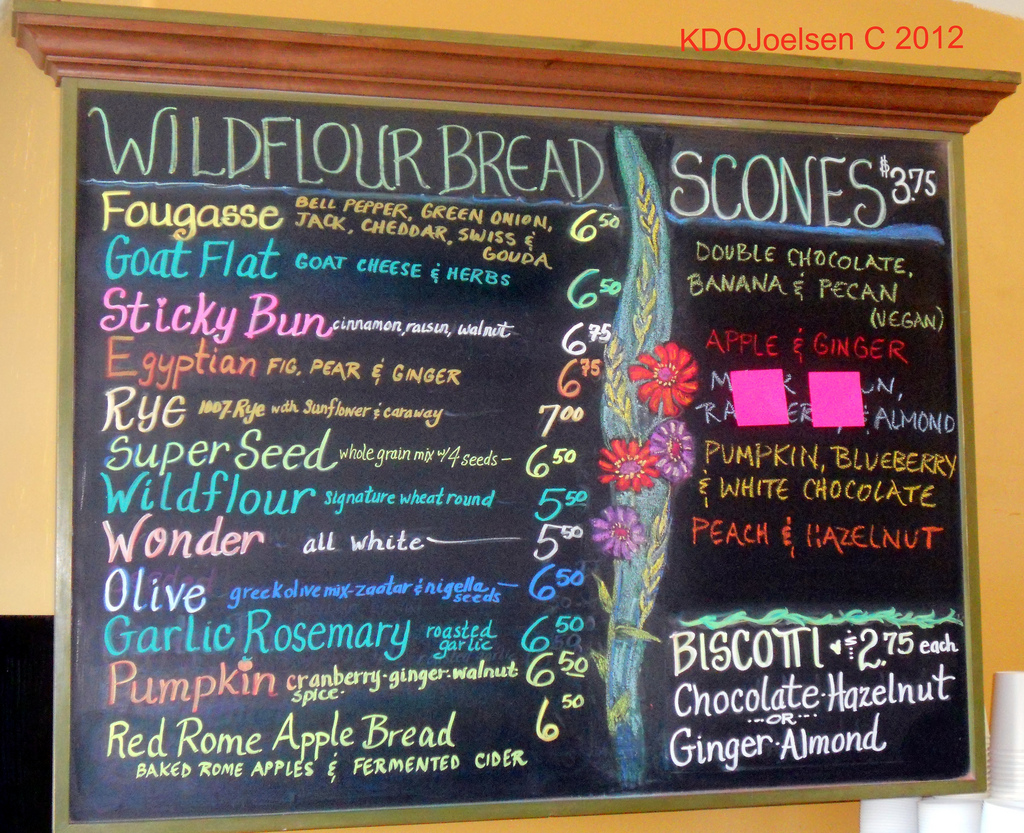 KDOJoelsen C 2012
WILDFLOUR BREAD
Fougasse BELL PEPPER, GREEN ONION, 6.50
JACK, CHEDDAR, SWISS &
GOUDA
Goat Flat GOAT CHEESE & HERBS 6.50
Sticky Bun cinnamon, raisin, walnut 6.75
Egyptian FIG, PEAR & GINGER 6.75
Rye 100% Rye with Sunflower & caraway 7.00
Super Seed whole grain mix w/4 seeds - 6.50
Wildflour signature wheat round 5.50
Wonder all white 5.50
Olive greek olive mix-zaatar & nigella seeds - 6.50
Garlic Rosemary roasted garlic 6.50
Pumpkin cranberry-ginger-walnut 6.50
spice
Red Rome Apple Bread 6.50
BAKED ROME APPLES & FERMENTED CIDER
SCONES $3.75
DOUBLE CHOCOLATE,
BANANA & PECAN
(VEGAN)
APPLE & GINGER
& ALMOND
PUMPKIN, BLUEBERRY
& WHITE CHOCOLATE
PEACH & HAZELNUT
BISCOTTI $2.75 each
Chocolate-Hazelnut
OR
Ginger-Almond